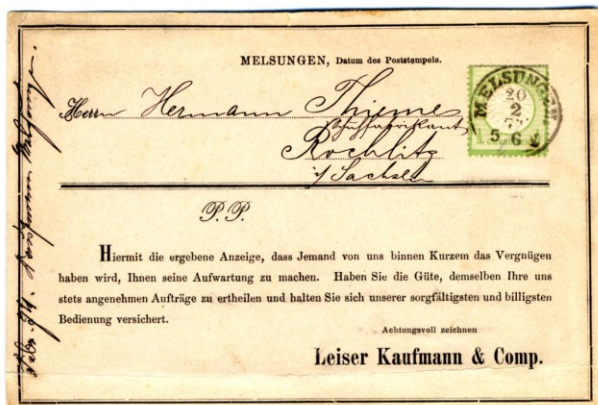 MELSUNGEN, Datum des Poststempels.
Herrn Hermann Thieme
Rochlitz
i/Sachsen
MELSUNGEN
20
2
5-6
P. P.
Hiermit die ergebene Anzeige, dass Jemand von uns binnen Kurzem das Vergnügen
haben wird, Ihnen seine Aufwartung zu machen. Haben Sie die Güte, demselben Ihre uns
stets angenehmen Aufträge zu ertheilen und halten Sie sich unserer sorgfältigsten und billigsten
Bedienung versichert.
Achtungsvoll zeichnen
Leiser Kaufmann & Comp.